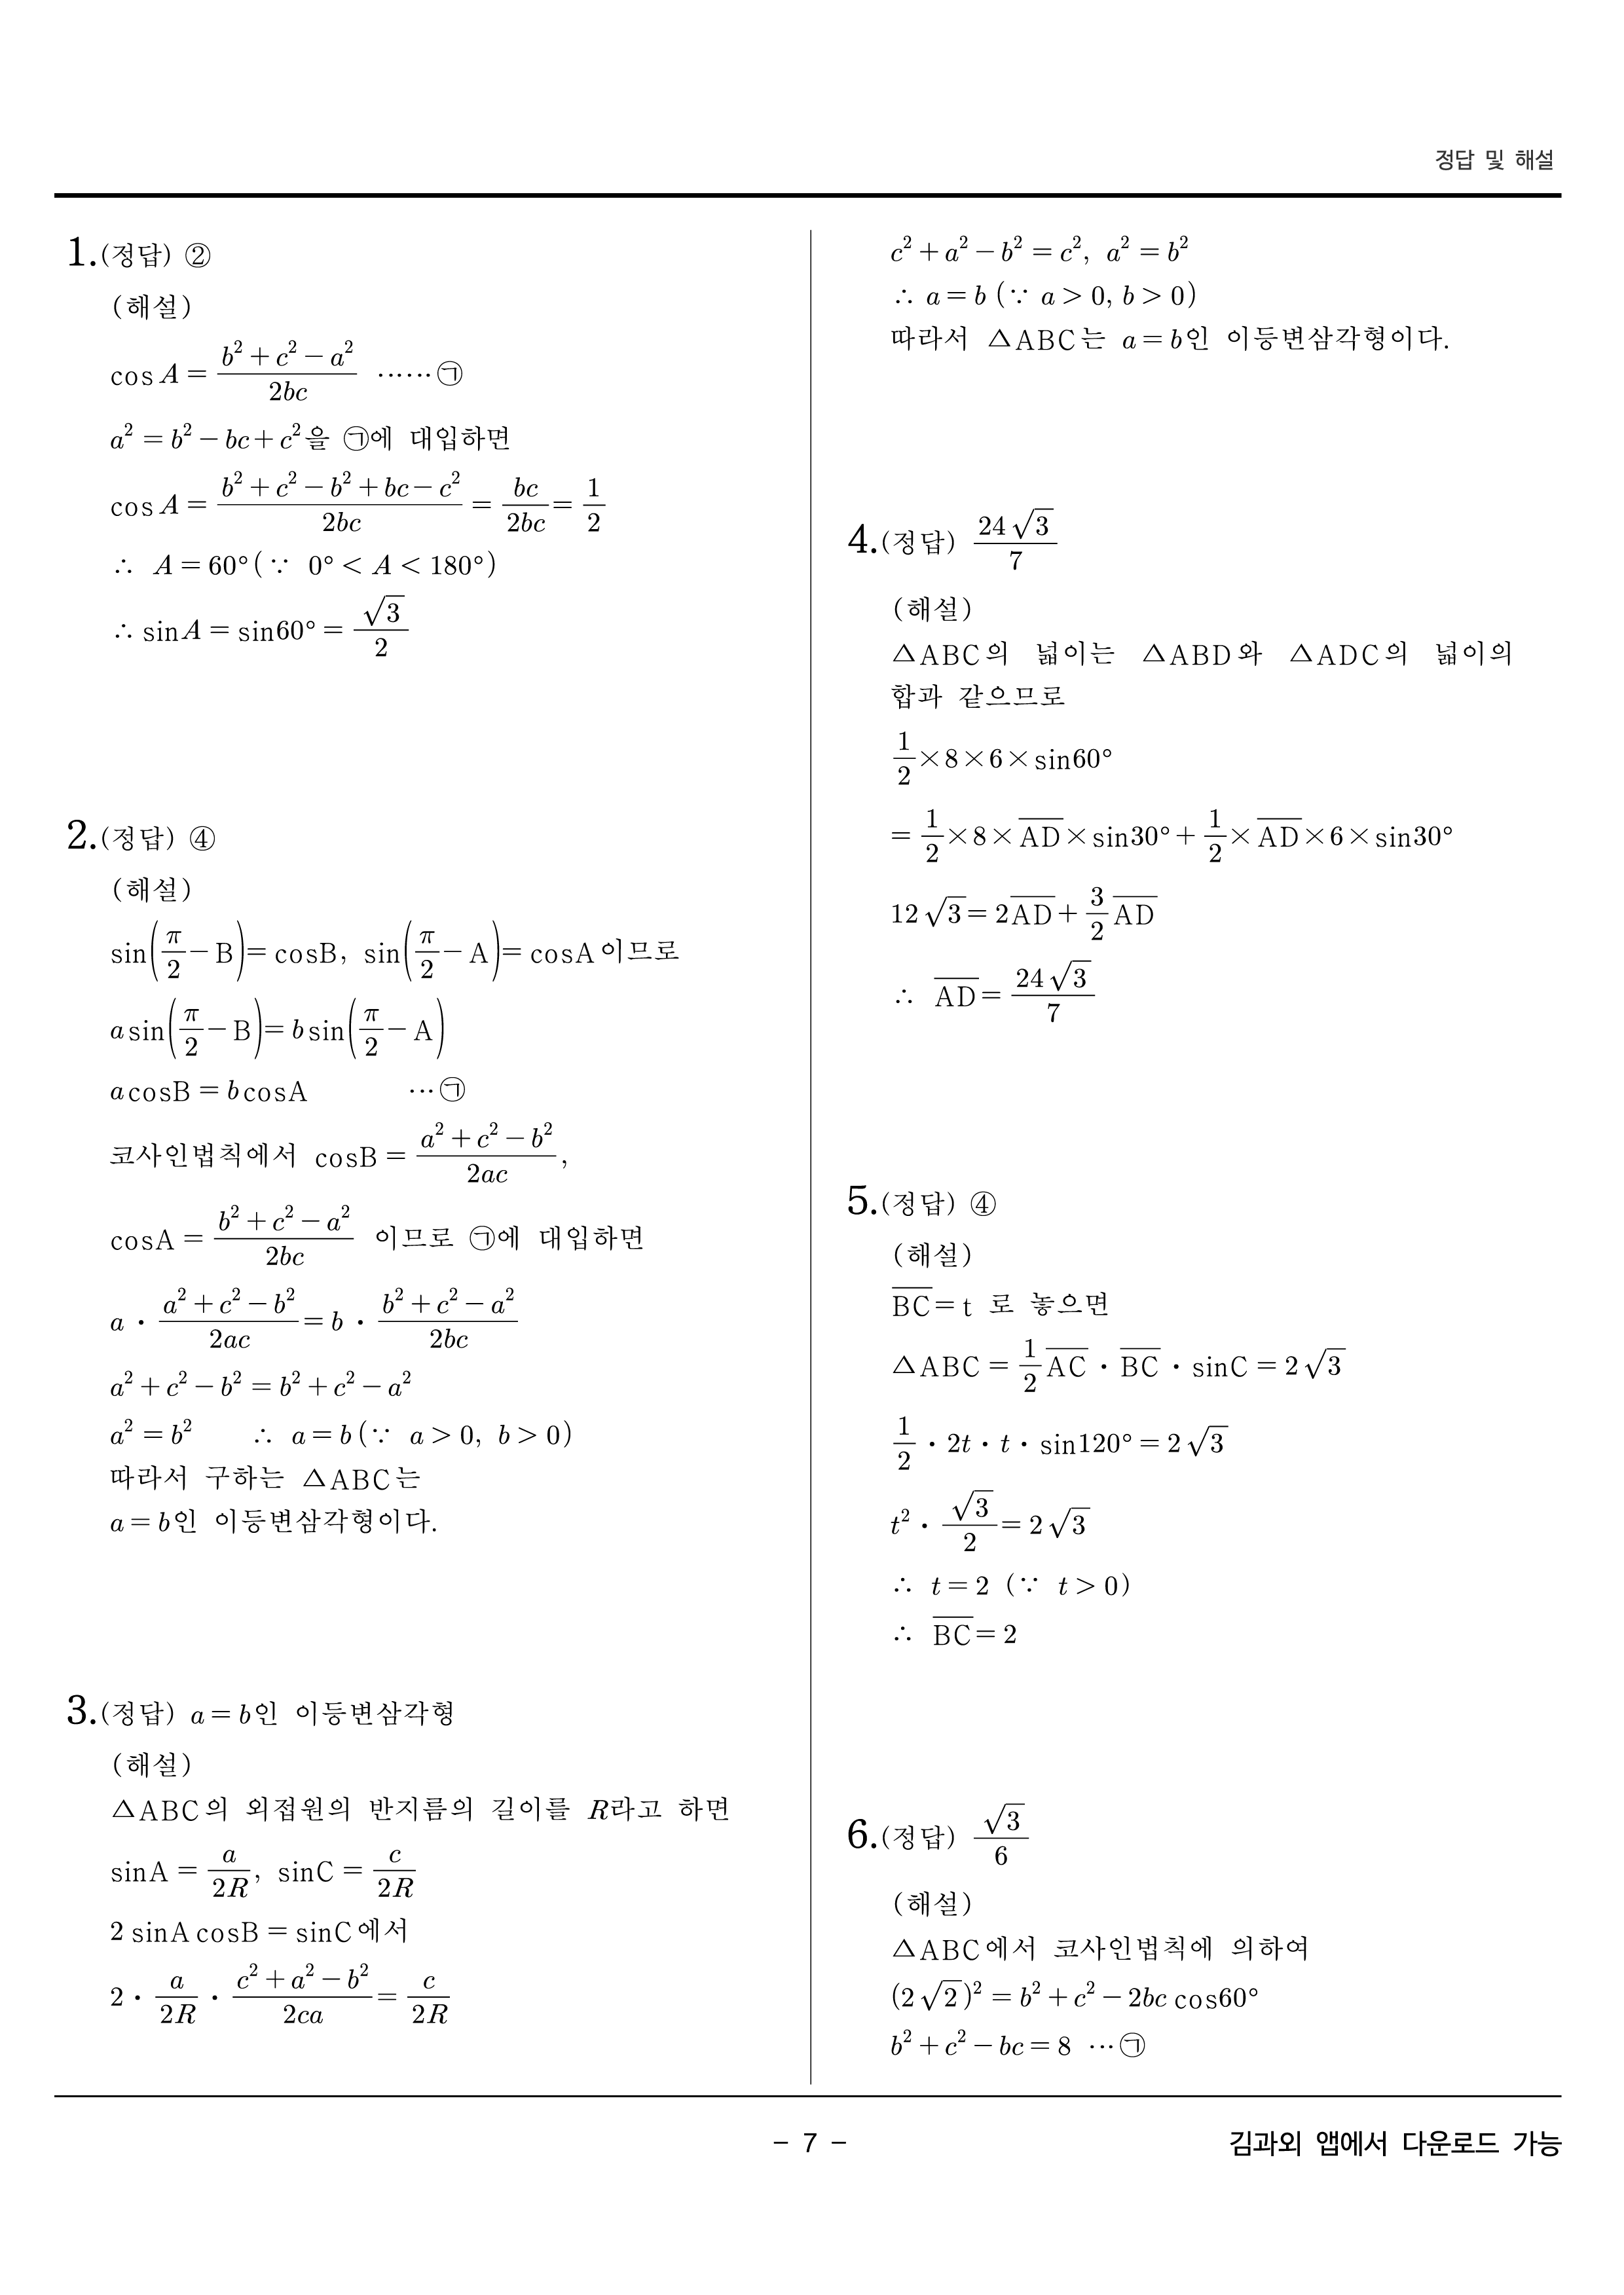 정답 및 해설
1.(정답) ②
(해설)
cos A = (b² + c² − a²)/(2bc) ⋯⋯㉠
a² = b² − bc + c²을 ㉠에 대입하면
cos A = (b² + c² − b² + bc − c²)/(2bc) = bc/(2bc) = 1/2
∴ A = 60° (∵ 0° < A < 180°)
∴ sin A = sin60° = √3/2
2.(정답) ④
(해설)
sin(π/2 − B) = cosB, sin(π/2 − A) = cosA이므로
a sin(π/2 − B) = b sin(π/2 − A)
a cosB = b cosA ⋯㉠
코사인법칙에서 cosB = (a² + c² − b²)/(2ac),
cosA = (b² + c² − a²)/(2bc) 이므로 ㉠에 대입하면
a · (a² + c² − b²)/(2ac) = b · (b² + c² − a²)/(2bc)
a² + c² − b² = b² + c² − a²
a² = b² ∴ a = b (∵ a > 0, b > 0)
따라서 구하는 △ABC는
a = b인 이등변삼각형이다.
3.(정답) a = b인 이등변삼각형
(해설)
△ABC의 외접원의 반지름의 길이를 R라고 하면
sinA = a/(2R), sinC = c/(2R)
2 sinA cosB = sinC에서
2 · a/(2R) · (c² + a² − b²)/(2ca) = c/(2R)
c² + a² − b² = c², a² = b²
∴ a = b (∵ a > 0, b > 0)
따라서 △ABC는 a = b인 이등변삼각형이다.
4.(정답) 24√3/7
(해설)
△ABC의 넓이는 △ABD와 △ADC의 넓이의
합과 같으므로
1/2 × 8 × 6 × sin60°
= 1/2 × 8 × A̅D̅ × sin30° + 1/2 × A̅D̅ × 6 × sin30°
12√3 = 2A̅D̅ + 3/2 A̅D̅
∴ A̅D̅ = 24√3/7
5.(정답) ④
(해설)
B̅C̅ = t 로 놓으면
△ABC = 1/2 A̅C̅ · B̅C̅ · sinC = 2√3
1/2 · 2t · t · sin120° = 2√3
t² · √3/2 = 2√3
∴ t = 2 (∵ t > 0)
∴ B̅C̅ = 2
6.(정답) √3/6
(해설)
△ABC에서 코사인법칙에 의하여
(2√2)² = b² + c² − 2bc cos60°
b² + c² − bc = 8 ⋯㉠
- 7 -
김과외 앱에서 다운로드 가능